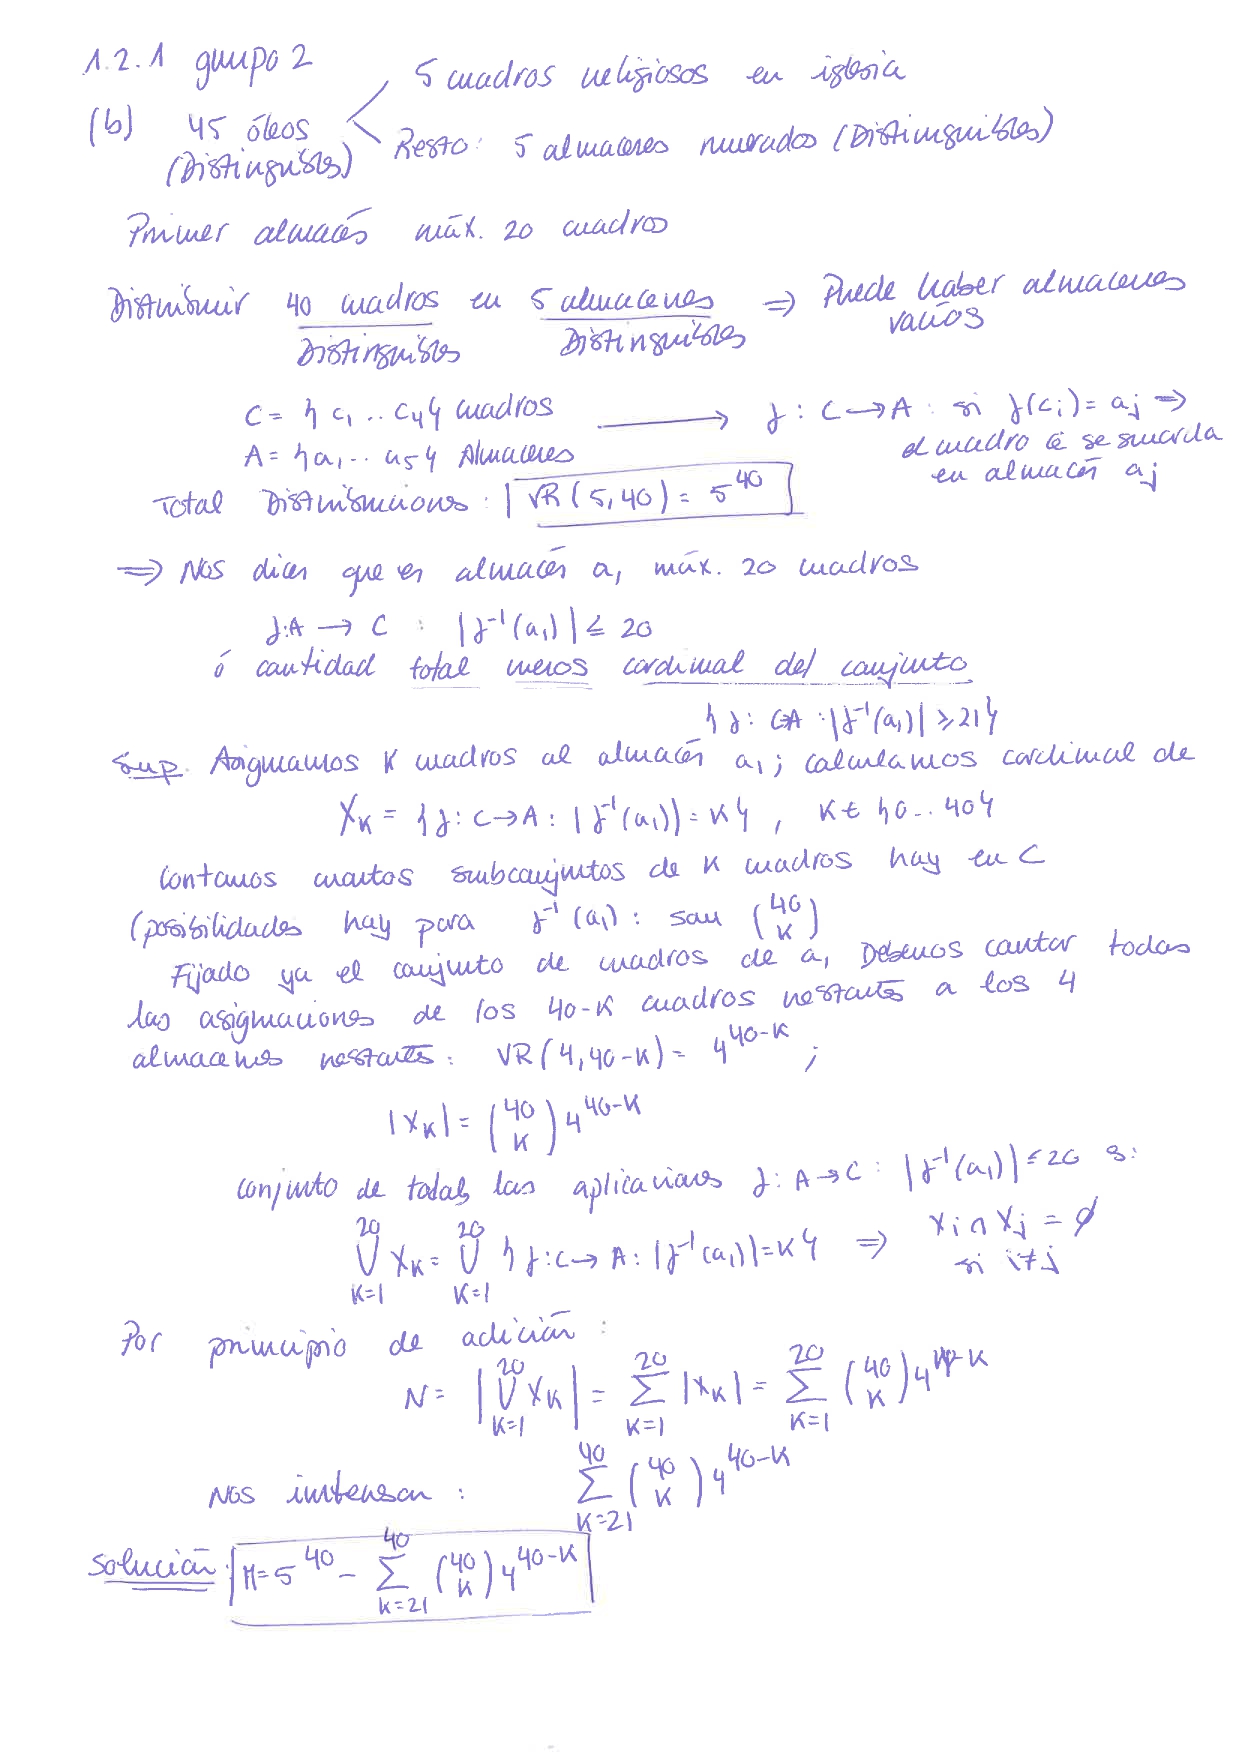 1.2.1 grupo 2
5 cuadros religiosos en iglesia
(b) 45 óleos
(Distinguibles)
Resto: 5 almacenes numerados (Distinguibles)
Primer almacén máx. 20 cuadros
Distribuir 40 cuadros en 5 almacenes ⇒ Puede haber almacenes vacíos
Distinguibles Distinguibles
C = {c₁ .. c₄} cuadros → f : C → A : si f(ci) = aj ⇒
A = {a₁ ... a₅} Almacenes
el cuadro ci se guarda
en almacén aj
Total Distribuciones : VR (5, 40) = 5^40
⇒ Nos dicen que en almacén a₁ máx. 20 cuadros
f: A → C : |f⁻¹(a₁)| ≤ 20
ó cantidad total menos cardinal del conjunto
{f: C→A : |f⁻¹(a₁)| ≥ 21}
Sup. Asignamos K cuadros al almacén a₁ ; calculamos cardinal de
X_K = {f: C → A : |f⁻¹(a₁)| = K} , K ∈ {0 .. 40}
Contamos cuantos subconjuntos de K cuadros hay en C
(posibilidades hay para f⁻¹(a₁) : son (40 K)
Fijado ya el conjunto de cuadros de a₁ Debemos contar todas
las asignaciones de los 40-K cuadros restantes a los 4
almacenes restantes : VR (4, 40-K) = 4^(40-K) ;
|X_K| = (40 K) 4^(40-K)
Conjunto de todas las aplicaciones f: A → C : |f⁻¹(a₁)| ≤ 20 s:
⋃_{K=1}^{20} X_K = ⋃_{K=1}^{20} {f: C → A : |f⁻¹(a₁)| = K} ⇒ Xi ∩ Xj = ∅
si i ≠ j
Por principio de adición :
N = |⋃_{K=1}^{20} X_K| = ∑_{K=1}^{20} |X_K| = ∑_{K=1}^{20} (40 K) 4^(40-K)
Nos interesan : ∑_{K=21}^{40} (40 K) 4^(40-K)
Solución : M = 5^40 - ∑_{K=21}^{40} (40 K) 4^(40-K)